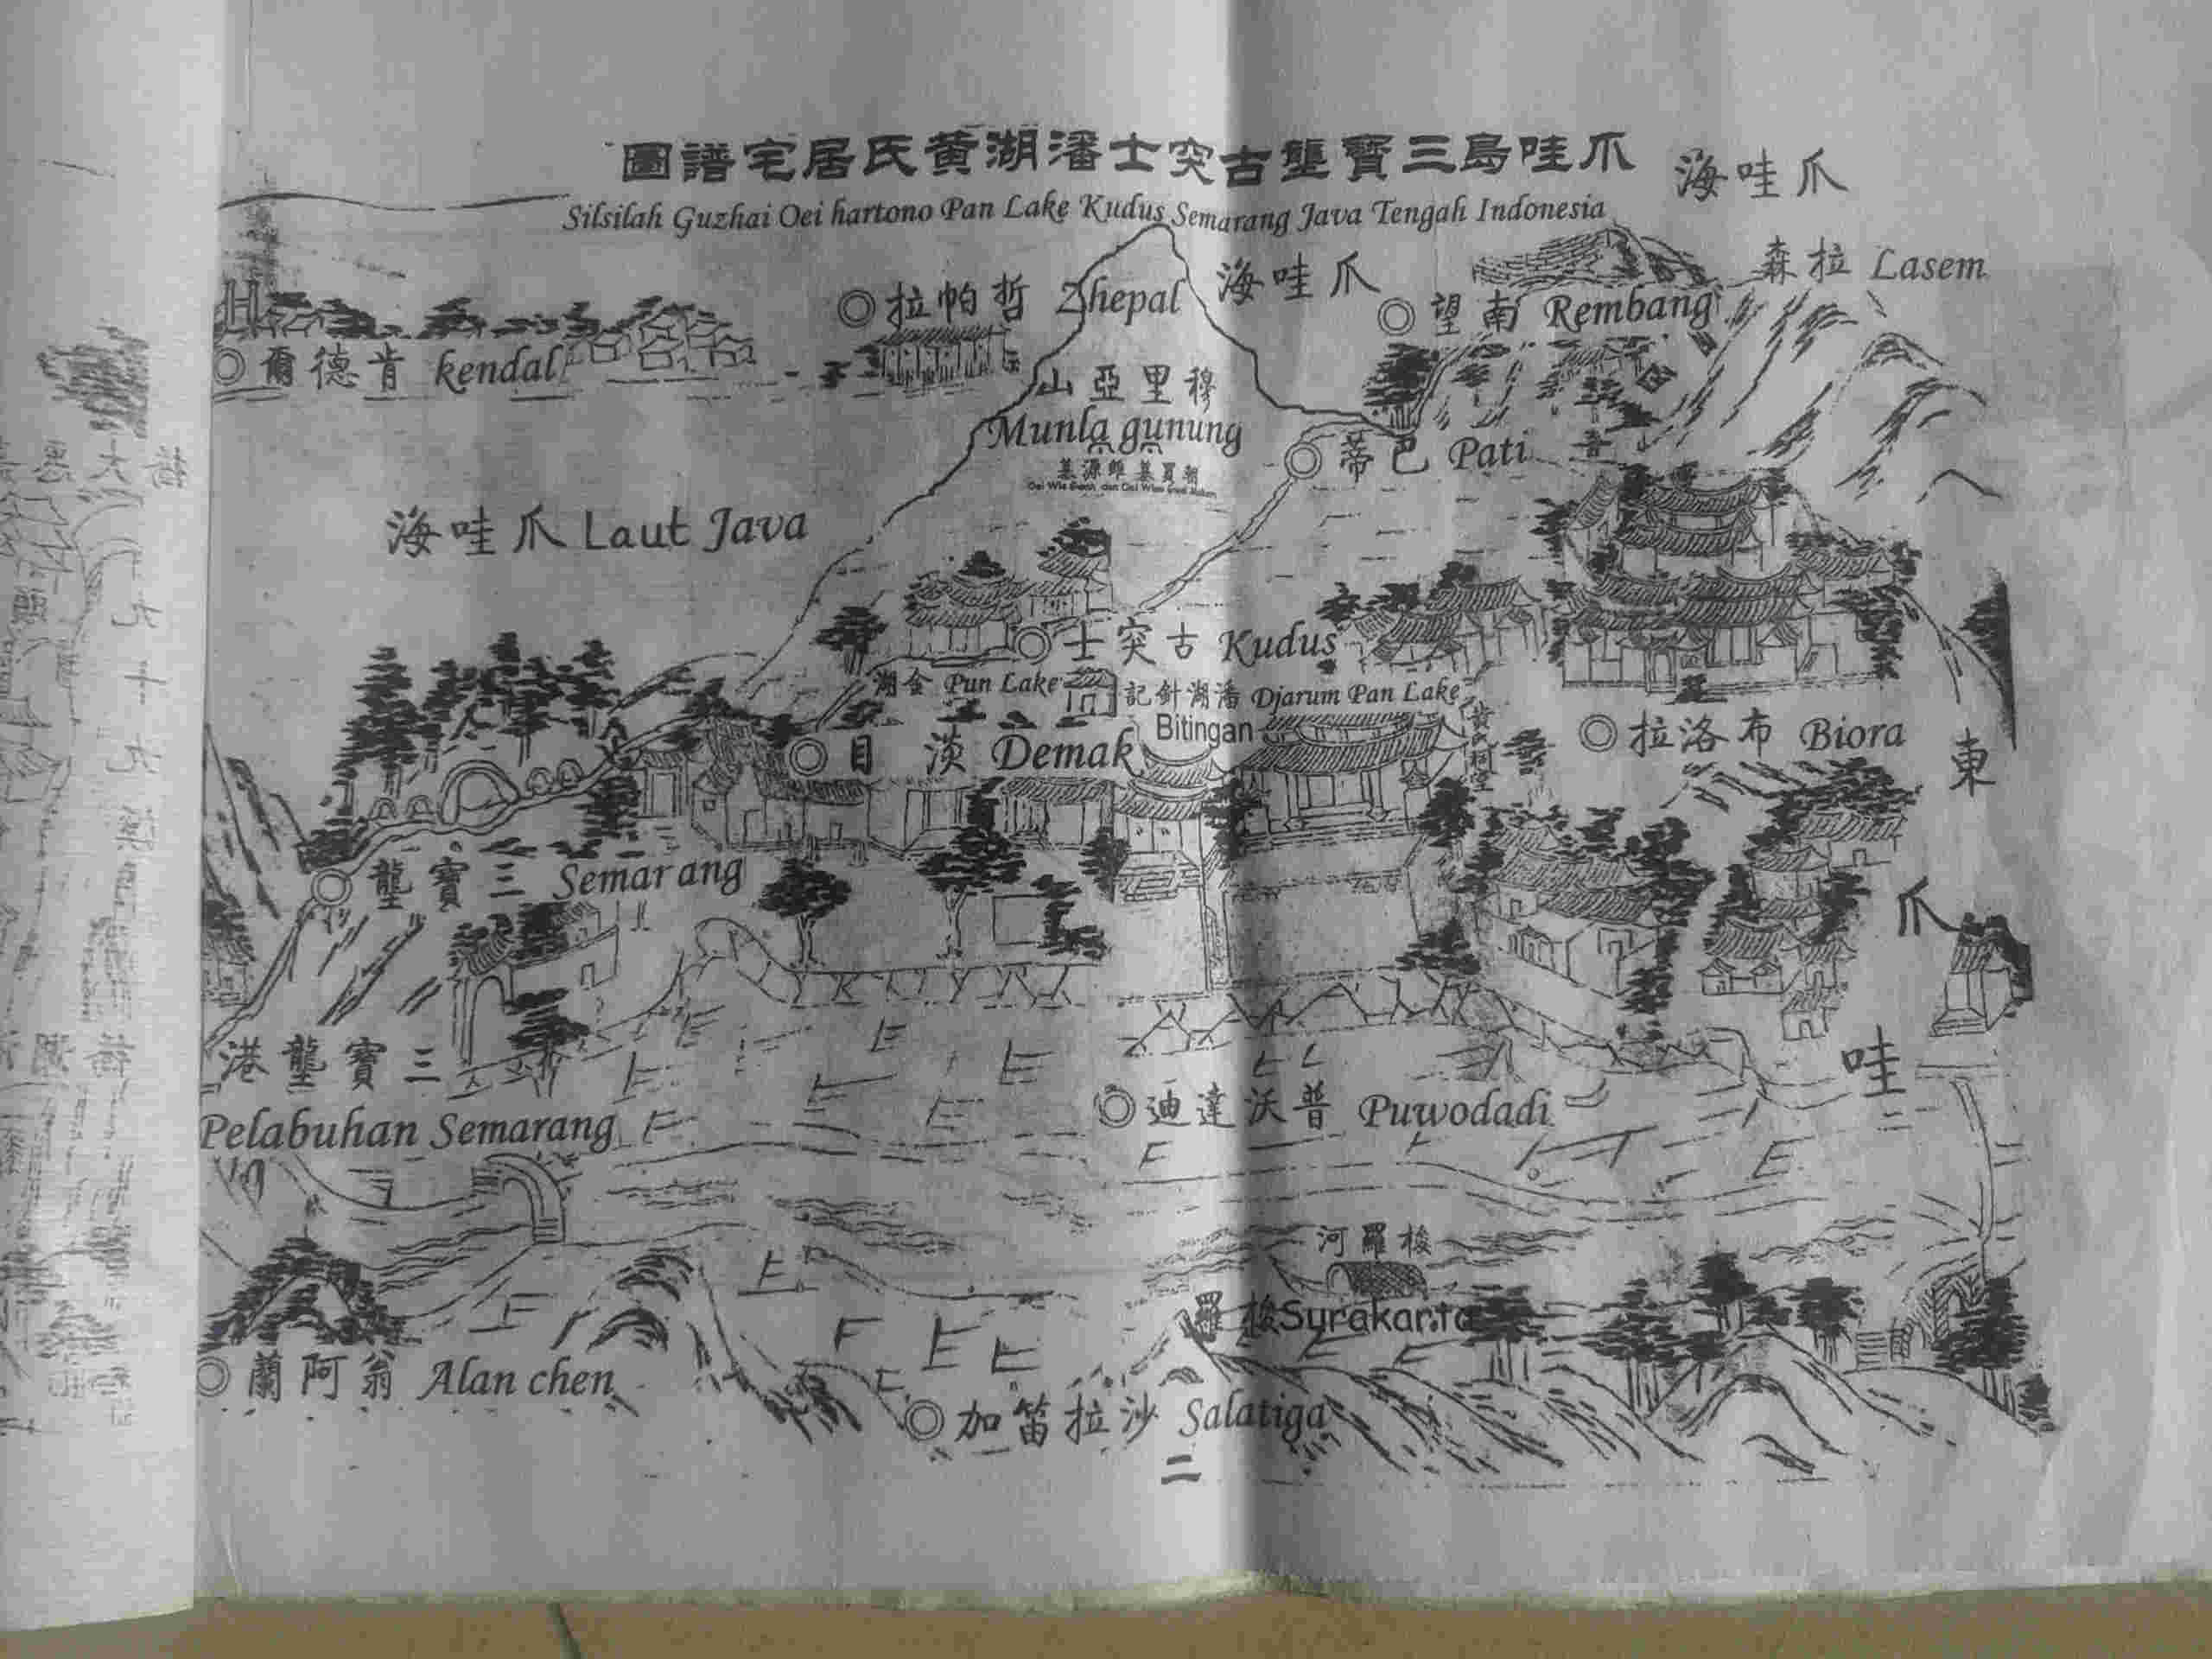 爪哇島三寶壟古突士潘湖黄氏居宅譜圖
Silsilah Guzhai Oei hartono Pan Lake Kudus Semarang Java Tengah Indonesia
爪哇海
拉森 Lasem
爪哇海
哲帕拉 Zhepal
南望 Rembang
肯德爾 kendal
穆里亞山
Munla gunung
巴蒂 Pati
爪哇海 Laut Java
古突士 Kudus
金湖 Pun Lake
潘湖針記 Djarum Pan Lake
Bitingan
黄氏祠堂
淡目 Demak
布洛拉 Biora
東爪哇
三寶壟 Semarang
三寶壟港
Pelabuhan Semarang
普沃達迪 Puwodadi
梭羅河
梭羅 Surakarta
翁阿蘭 Alan chen
沙拉笛加 Salatiga
二